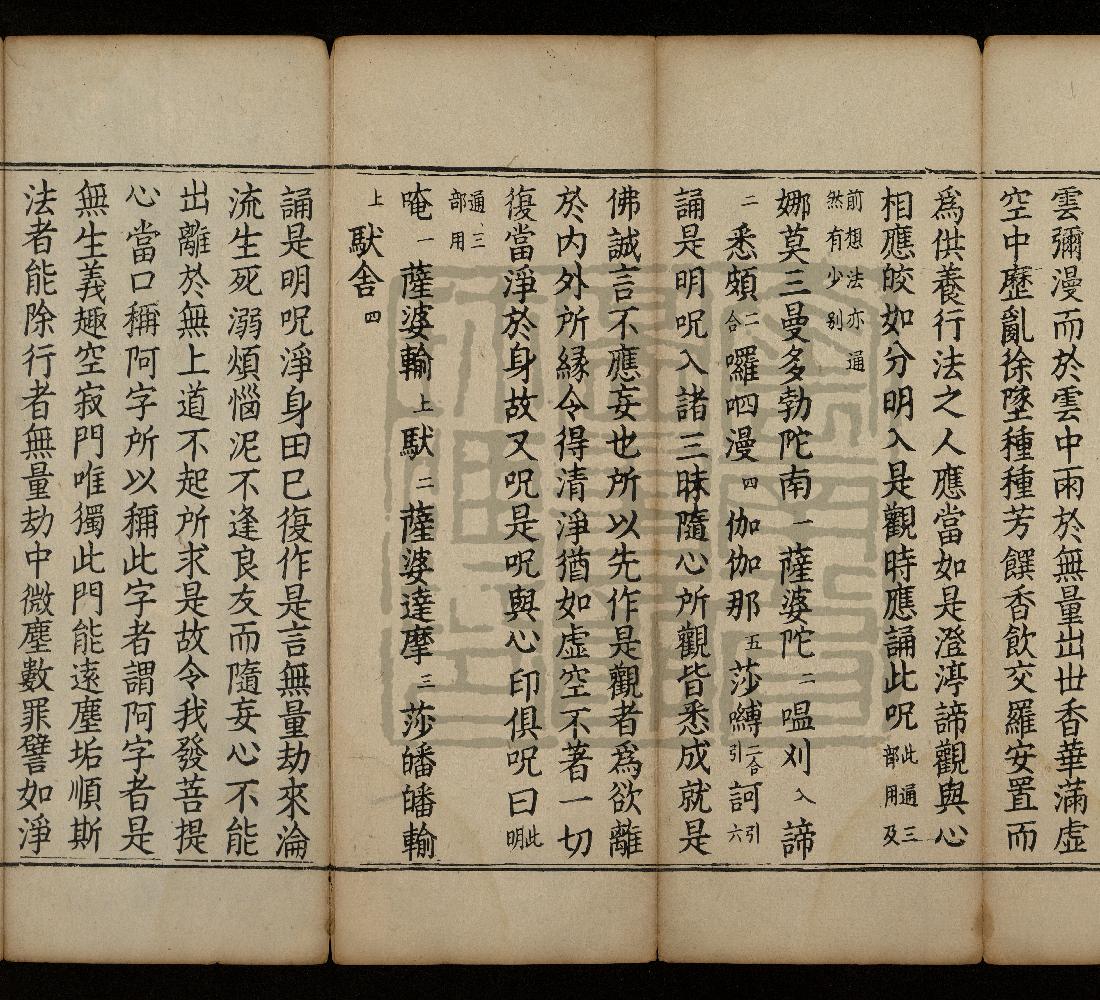 雲彌漫而於雲中雨於無量出世香華滿虛
空中歷亂徐墜種種芳饌香飲交羅安置而
爲供養行法之人應當如是澄渟諦觀與心
相應皎如分明入是觀時應誦此呪此通三部用及
前想法亦通然有少别
娜莫三曼多勃陀南一薩婆陀二嗢刈入諦
二悉頗二合囉呬漫四伽伽那五莎嚩二合引訶引六
誦是明呪入諸三昧隨心所觀皆悉成就是
佛誠言不應妄也所以先作是觀者爲欲離
於内外所緣令得清淨猶如虛空不著一切
復當淨於身故又呪是呪與心印俱呪曰此明
通三部用
唵一薩婆輸上馱二薩婆達摩三莎皤皤輸
上馱舍四
誦是明呪淨身田已復作是言無量劫來淪
流生死溺煩惱泥不逢良友而隨妄心不能
出離於無上道不起所求是故令我發菩提
心當口稱阿字所以稱此字者謂阿字者是
無生義趣空寂門唯獨此門能遠塵垢順斯
法者能除行者無量劫中微塵數罪譬如淨